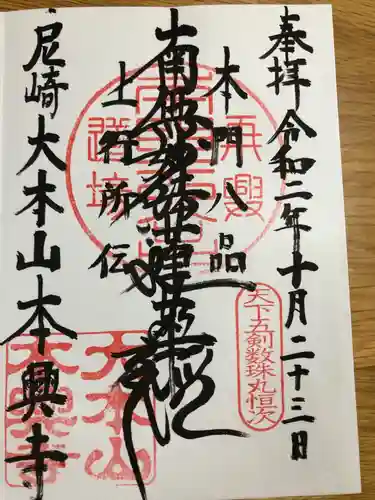 奉拝 令和二年十月二十三日
本門八品
南無妙法蓮華経
上行所伝
尼崎 大本山 本興寺
天下五剣数珠丸恒次
大本山
本興寺